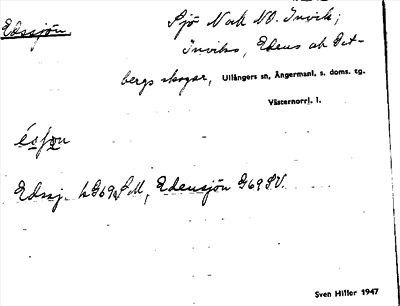 Edssjön
Sjö N och NO. Invik;
Inviks, Edens och Dit-
bergs skogar, Ullångers sn, Ångermanl. s. doms. tg.
Västernorrl. l.
Edssj. k G69a SM, Edensjön G69 SV.
Sven Hiller 1947